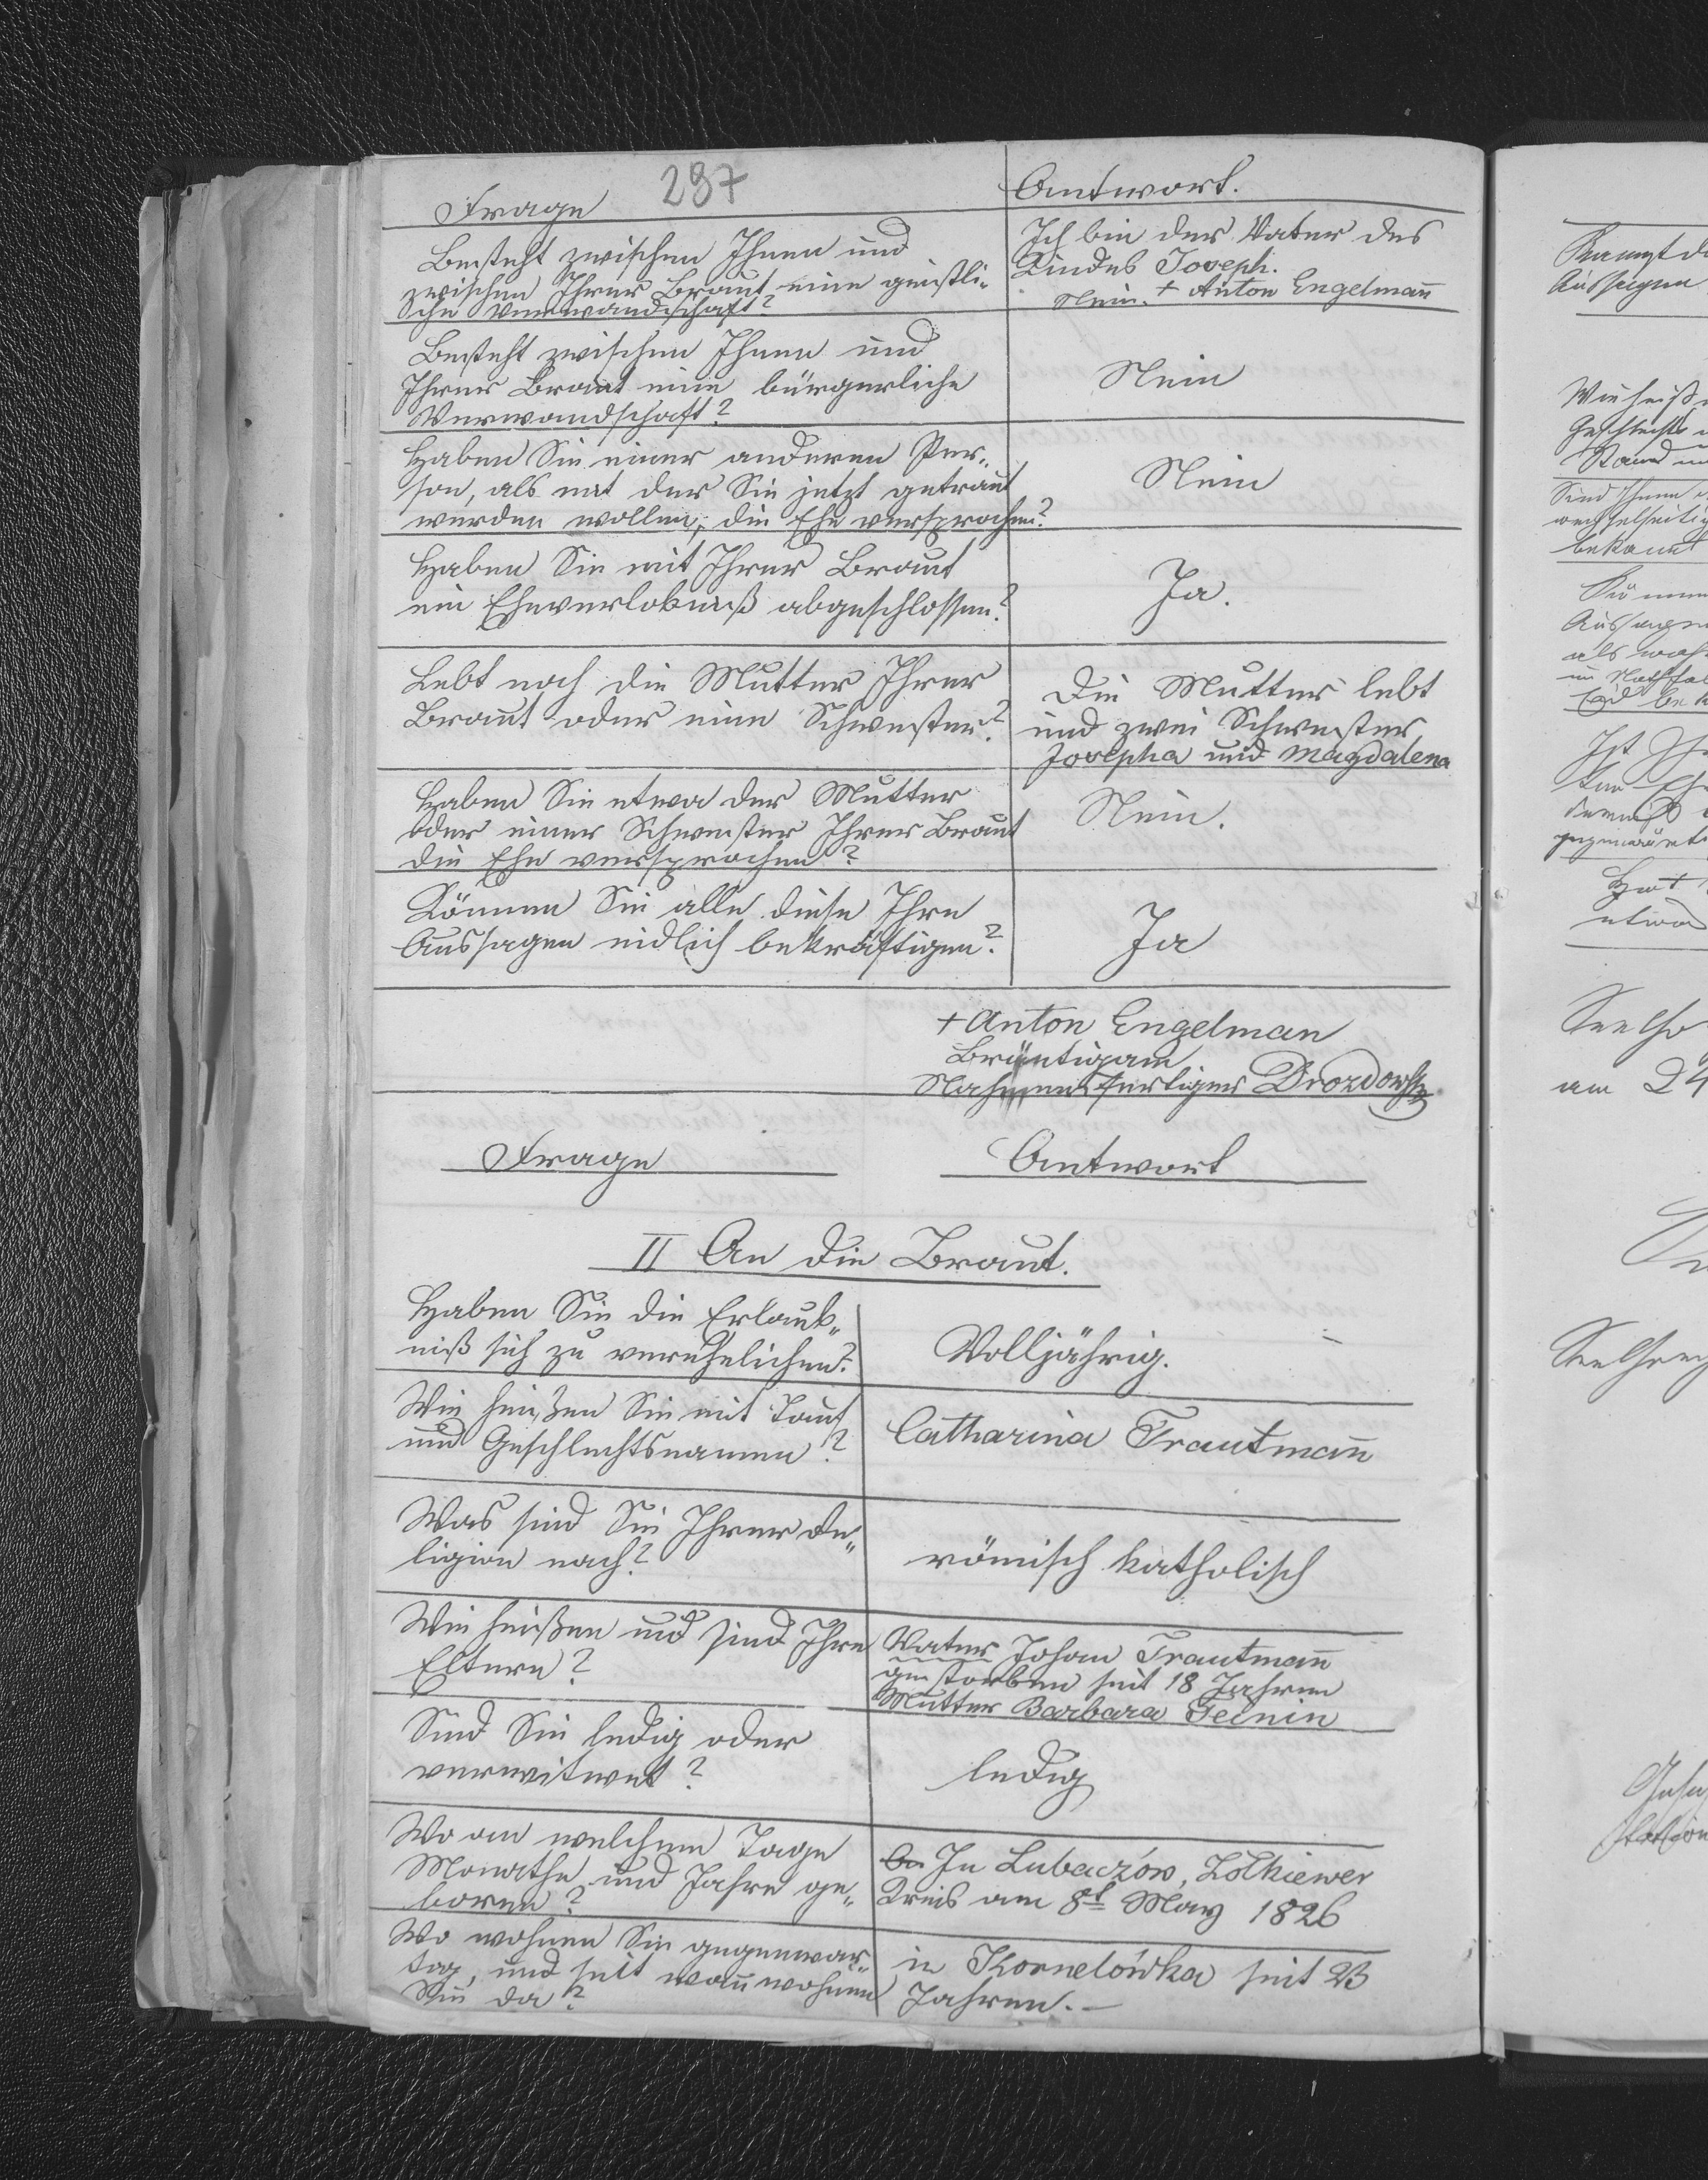 297
Frage
Antwort.
Besteht zwischen Ihnen und
zwischen Ihrer Braut eine geistli-
che Verwandschaft?
Ich bin der Vater des
Kindes Joseph.
Nein. + Anton Engelmann̄
Besteht zwischen Ihnen und
Ihrer Braut eine bürgerliche
Verwandschaft?
Nein
Haben Sie einer anderen Per-
son, als mit der Sie jetzt getraut
werden wollen, die Ehe versprochen?
Nein
Haben Sie mit Ihrer Braut
ein Eheverlobniß abgeschlossen?
Ja.
Lebt noch die Mutter Ihrer
Braut oder eine Schwester?
Die Mutter lebt
und zwei Schwester
Josepha und Magdalena
Haben Sie etwa der Mutter
oder einer Schwester Ihrer Braut
die Ehe versprochen?
Nein.
Können Sie alle diese Ihre
Aussagen eidlich bekräftigen?
Ja
+ Anton Engelman
Bräutigam
Nahmensfertiger Drozdowsky
Frage
Antwort
II An die Braut.
Haben Sie die Erlaub-
niß sich zu verehelichen?
Volljährig.
Wie heißen Sie mit Tauf
und Geschlechtsnamen?
Catharina Trautman̄
Was sind Sie Ihrer Re-
ligion nach?
römisch katholisch
Wie heißen und sind Ihre
Eltern?
Vater Johan Trautman̄
gestorben seit 18 Jahren
Mutter Barbara Feinin
Sind Sie ledig oder
verwitwet?
ledig
Wo am welchem Tage
Monathe und Jahre ge-
boren?
In Lubaczów, Zolkiewer
Kreis am 8t May 1826
Wo wohnen Sie gegenwär-
tig, und seit wan̄ wohnen
Sie da?
in Kornelówka seit 23
Jahren.—
Aussagen
Stand
Sind Ihnen
wechselseitig
bekannt
Aussagen
am 24